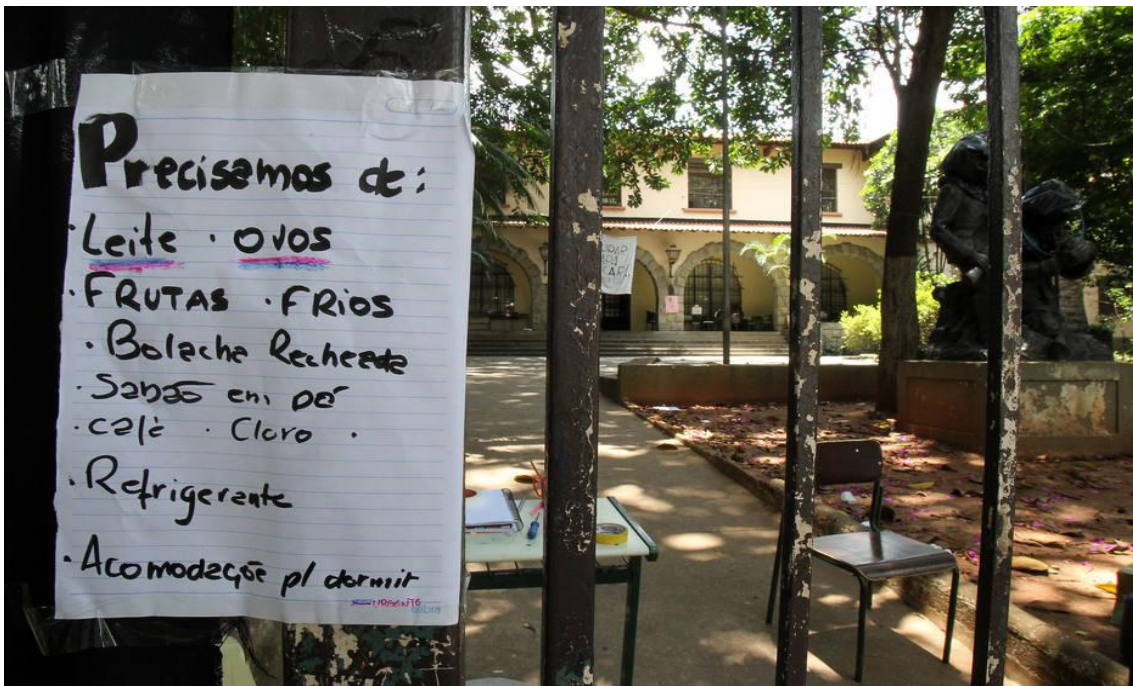 Precisamos de:
· Leite · OVOS
· FRUTAS · FRIOS
· Bolacha Recheada
· Sabão em pó
· café · Cloro ·
· Refrigerante
· Acomodação p/ dormir
URGENTE